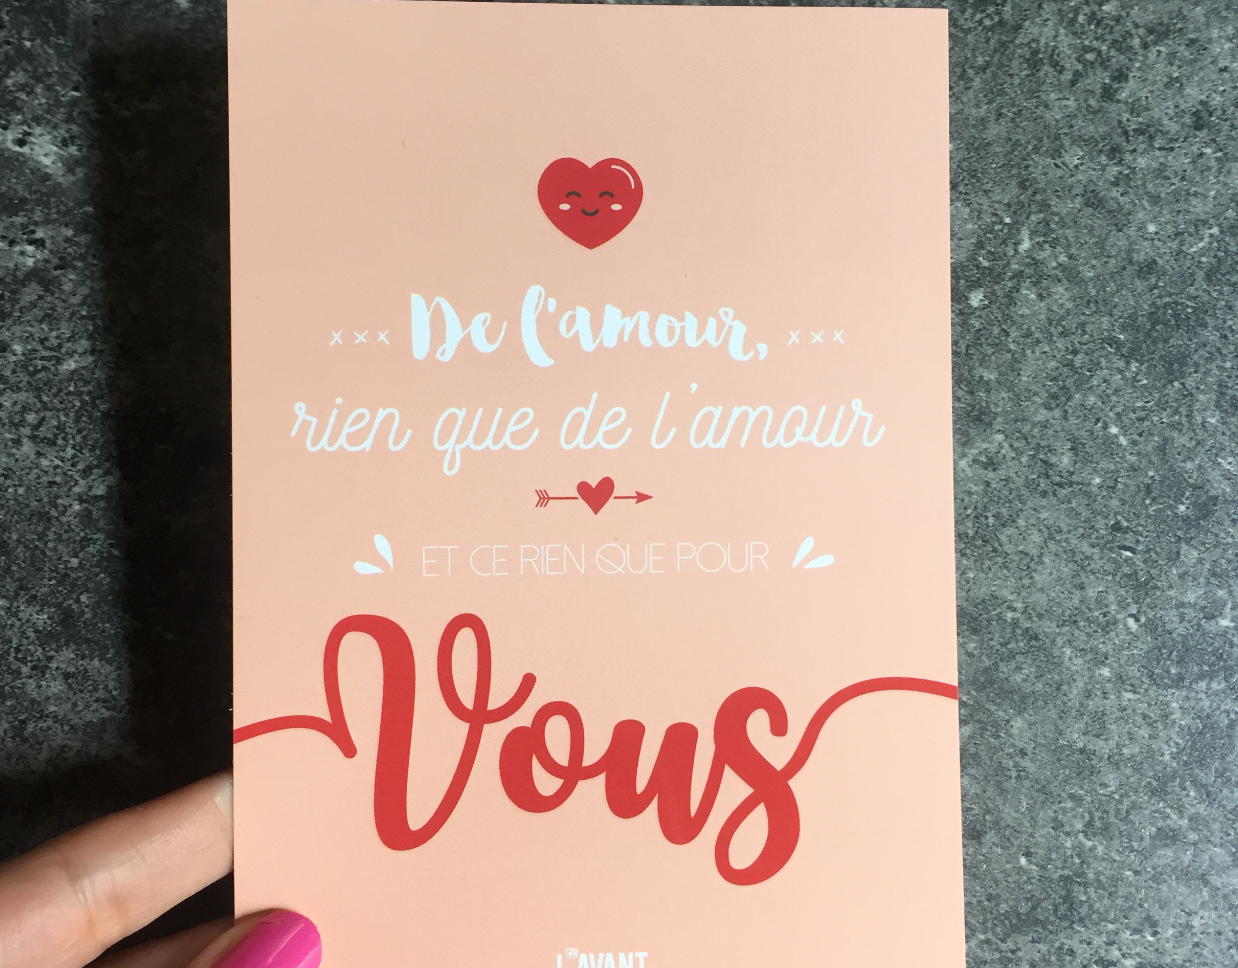 xxx De l'amour, xxx
rien que de l'amour
ET CE RIEN QUE POUR
Vous
L'AVANT